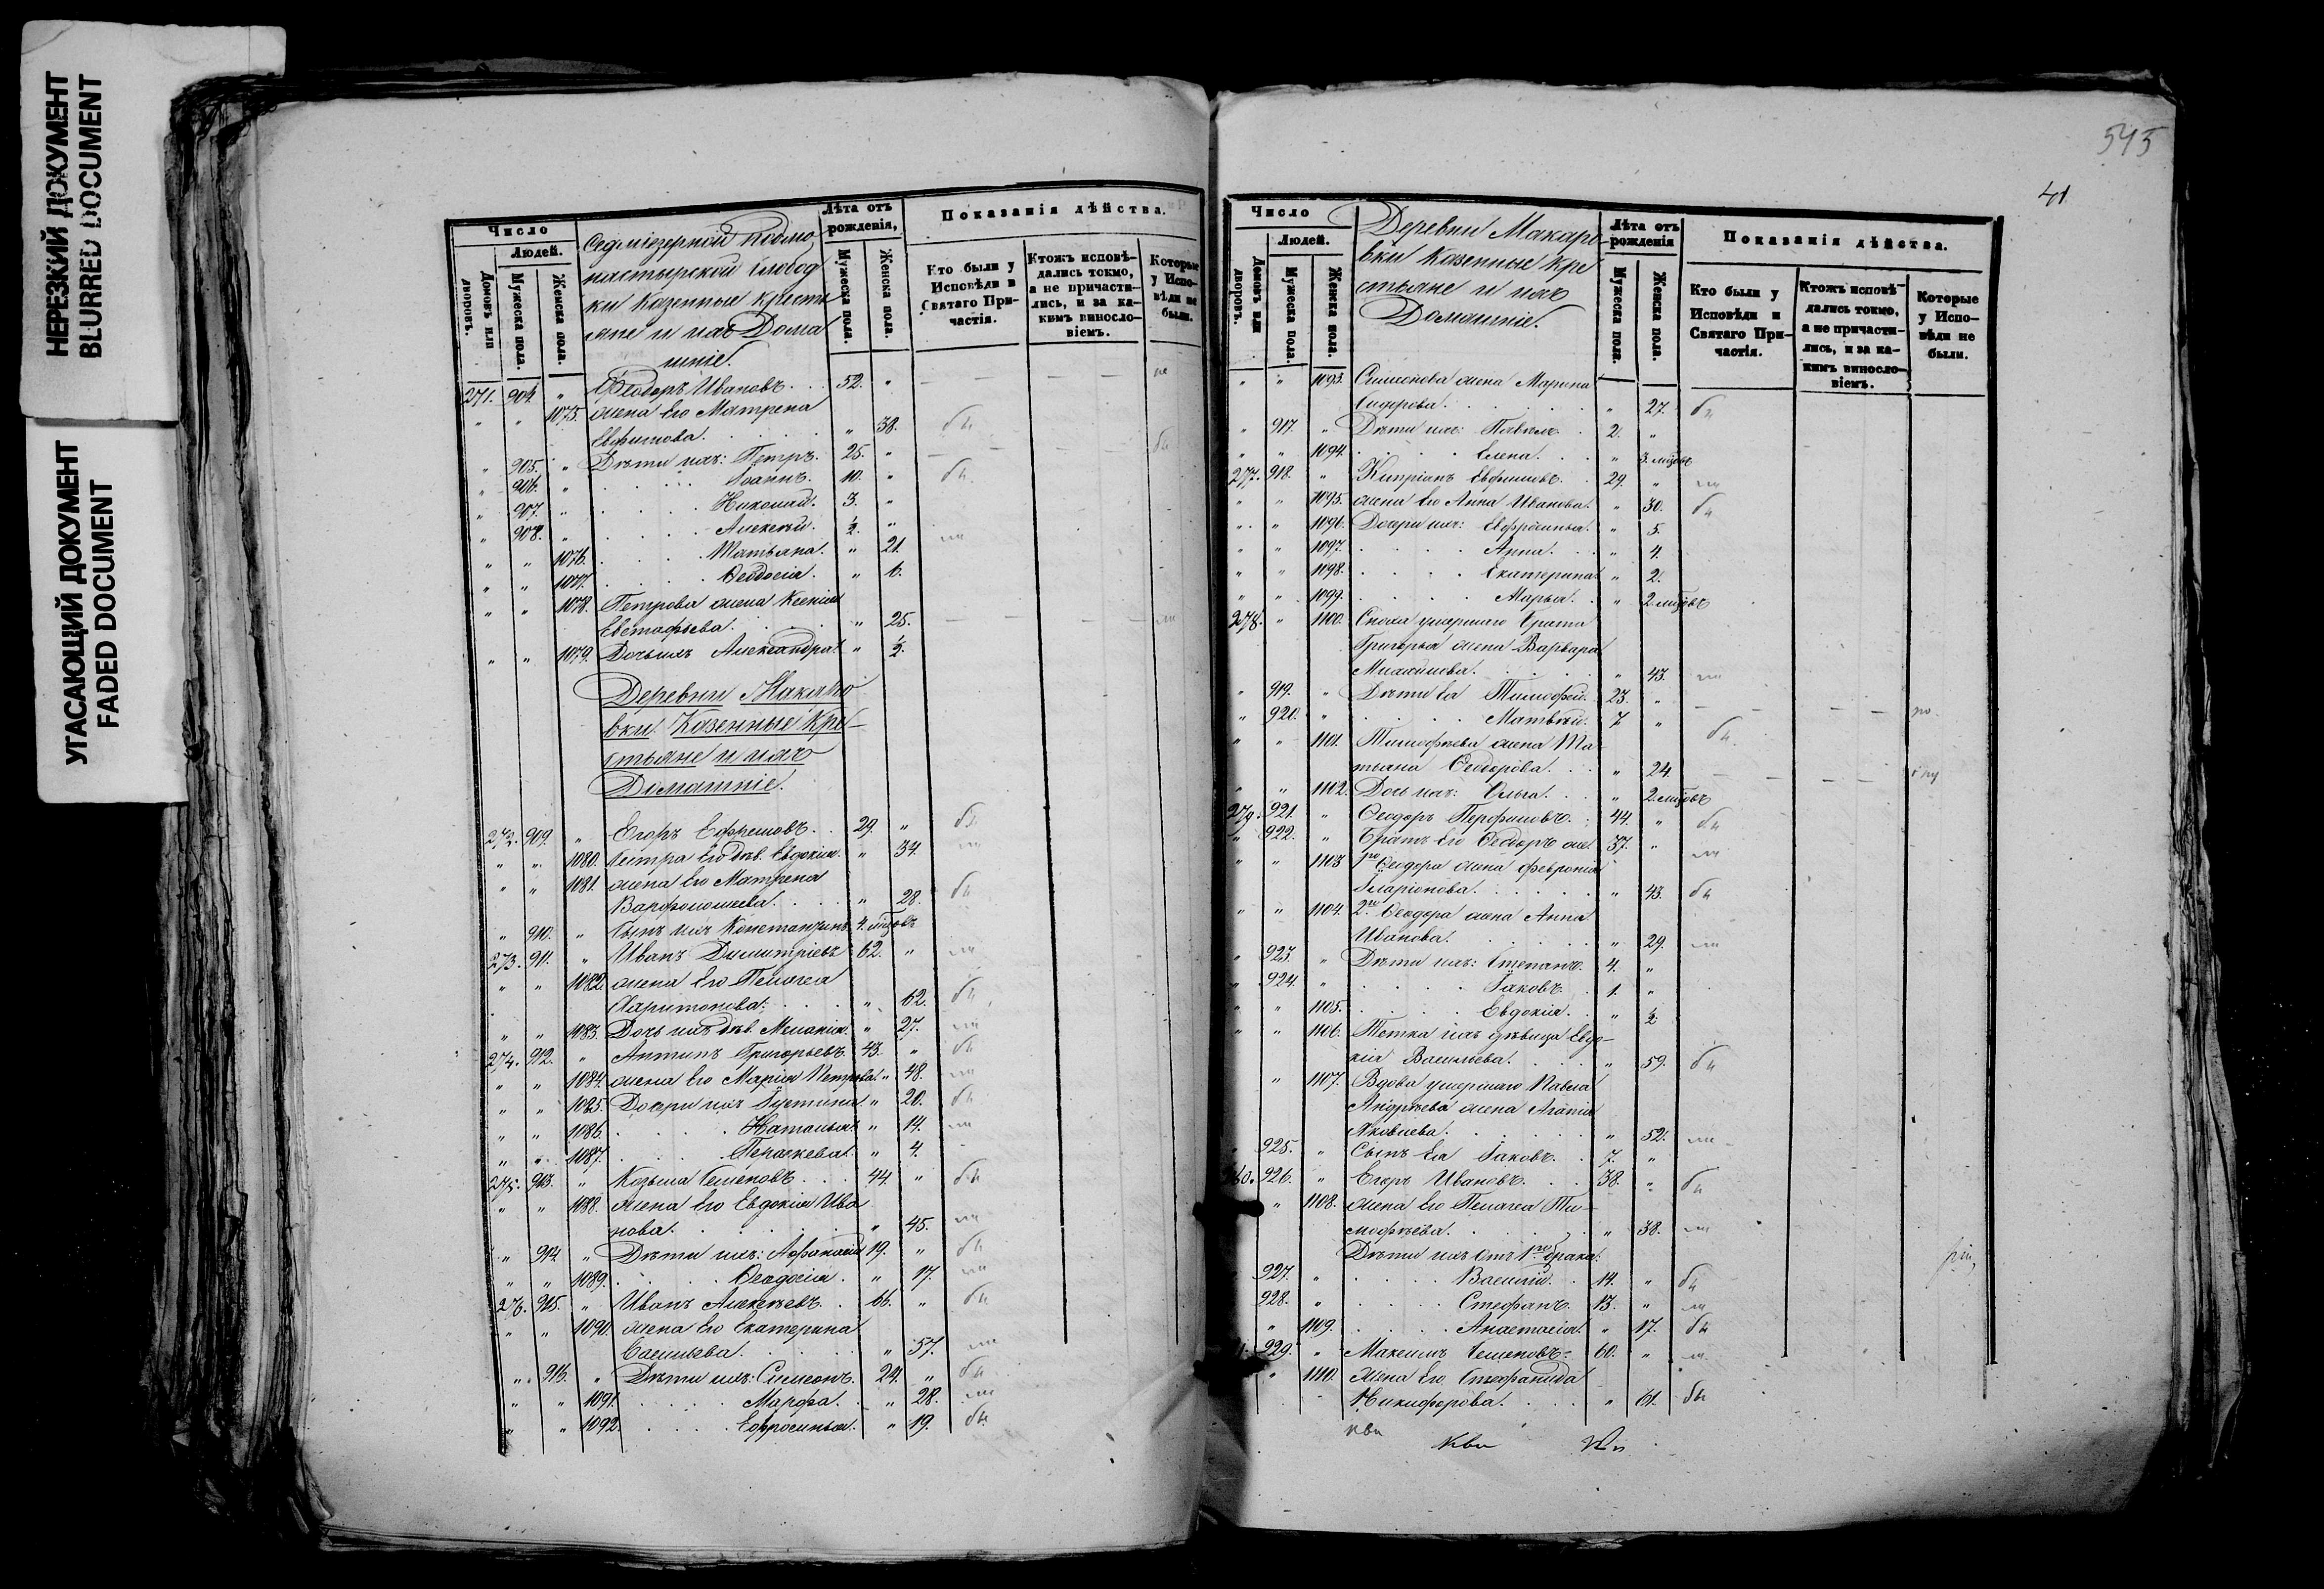 НЕРЕЗКИЙ ДОКУМЕНТ
BLURRED DOCUMENT
УГАСАЮЩИЙ ДОКУМЕНТ
FADED DOCUMENT
Число
Людей.
Домовъ или дворовъ.
Мужеска пола.
Женска пола.
Седміезерной
настырской Слобод
ки казенные крестъ
яне и ихъ Дома
шніе.
Лѣта отъ рожденія,
Мужеска пола.
Женска пола.
Показанія дѣйства.
Кто были у Исповѣди и Святаго Причастія.
Ктожъ исповѣдались токмо, а не причастились, и за какимъ винословіемъ.
Которые у Исповѣди не были.
271. 904. " Ѳеодоръ Ивановъ. 52. "
" " 1075. жена Его Матрена
Евфимова. " 38.
" 905. " Дѣти ихъ: Петръ. 25. "
" 906. " Іоаннъ. 10. "
" 907. " Николай. 3. "
" 908. " Алексѣй. ½. "
" " 1076. Татьяна. " 21.
" " 1077. Ѳеодосія. " 6.
" " 1078. Петрова жена Ксенія
Евстафьева. " 25.
" " 1079. Дочь ихъ Александра. " ½.
Деревни Макаро
вки Казенные Кре-
стьяне и ихъ
Домашніе.
272. 909. " Егоръ Ефремовъ. 29. "
" " 1080. Сестра Его дѣв. Евдокія. " 34.
" " 1081. жена Его Матрена
Варфоломеева. " 28.
" 910. " Сынъ ихъ Константинъ. 4. мѣсцовъ
273. 911. " Иванъ Димитріевъ 62. "
" " 1082. жена Его Пелагея
Харитонова. " 62.
" " 1083. Дочь ихъ дѣв. Меланія. " 27.
274. 912. " Антипъ Григорьевъ. 43. "
" " 1084. жена Его Марія Петрова. " 48.
" " 1085. Дочери ихъ Іустина. " 20.
" " 1086. Наталья. " 14.
" " 1087. Параскева. " 4.
275. 913. " Козьма Семеновъ. 44. "
" " 1088. жена Его Евдокія Ива
нова. " 45.
" 914. " Дѣти ихъ: Афанасій 19. "
" " 1089. Ѳеодосія. " 17.
276. 915. " Иванъ Алексѣевъ. 66. "
" " 1090. жена Его Екатерина
Васильева. " 57.
" 916. " Дѣти ихъ: Симеонъ. 24. "
" " 1091. Марфа. " 28.
" " 1092. Ефросинья. " 19.
545
41
Число
Людей.
Домовъ или дворовъ.
Мужеска пола.
Женска пола.
Деревни Макаро-
вки Казенные Кре
стьяне и ихъ
Домашніе.
Лѣта отъ рожденія
Мужеска пола.
Женска пола.
Показанія дѣйства.
Кто были у Исповѣди и Святаго Причастія.
Ктожъ исповѣдались токмо, а не причастились, и за какимъ винословіемъ.
Которые у Исповѣди не были.
" " 1093. Симеонова жена Марина
Сидорова. " 27.
" 917. " Дѣти ихъ: Павелъ. 2. "
" " 1094. Елена. " 3. мѣсцовъ
277. 918. " Кипріанъ Евфимовъ. 29. "
" " 1095. жена Его Анна Иванова. " 30.
" " 1096. Дочери ихъ: Евфросинья. " 5.
" " 1097. Анна. " 4.
" " 1098. Екатерина. " 2.
" " 1099. Марья. " 2. мѣсцовъ
278. " 1100. Сноха умершаго брата
Григорья жена Варвара
Михайлова. " 43.
" 919. " Дѣти Ея Тимофей. 23. "
" 920. " Матвѣй. 7 "
" " 1101. Тимофѣева жена Та
тьяна Ѳеодорова. " 24.
" " 1102. Дочь ихъ: Ольга. " 2. мѣсцовъ
279. 921. " Ѳеодоръ Перфиловъ. 44. "
" 922. " Братъ Его Ѳеодоръ же. 37. "
" " 1103 1го Ѳеодора жена Февронія
Иларіонова. " 43.
" " 1104. 2го Ѳеодора жена Анна
Иванова. " 29.
" 923. " Дѣти ихъ: Степанъ. 4. "
" 924. " Іаковъ. 1. "
" " 1105. Евдокія. " ½
" " 1106. Тетка ихъ дѣвица Евдо-
кія Васильева. " 59.
" 1107. Вдова умершаго Павла
Андрѣева жена Агапія
Яковлева. " 52.
925. " Сынъ Ея Іаковъ. 7. "
280. 926. " Егоръ Ивановъ. 38. "
" 1108. жена Его Пелагея Ти-
мофѣева. " 38.
Дѣти ихъ отъ 1го брака:
927. " Василій. 14. "
928. " Стефанъ. 13. "
" 1109. Анастасія. " 17.
929. " Максимъ Семеновъ. 60. "
" 1110. жена Его Стефанида
Никифорова. " 61.